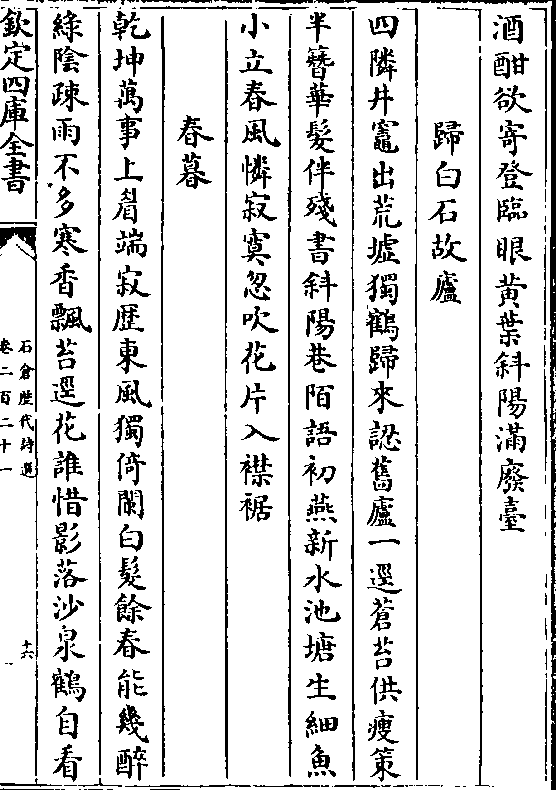 酒酣欲寄登臨眼黄葉斜陽滿廢臺
歸白石故廬
四隣井竈出荒墟獨鶴歸來認舊廬一逕蒼苔供瘦策
半簪華髮伴殘書斜陽巷陌語初燕新水池塘生細魚
小立春風憐寂寞忽吹花片入襟裾
春暮
乾坤萬事上眉端寂歴東風獨倚闌白髮餘春能幾醉
綠陰疎雨不多寒香飄苔逕花誰惜影落沙泉鶴自看
欽定四庫全書
石倉歴代詩選
卷二百二十一
十六